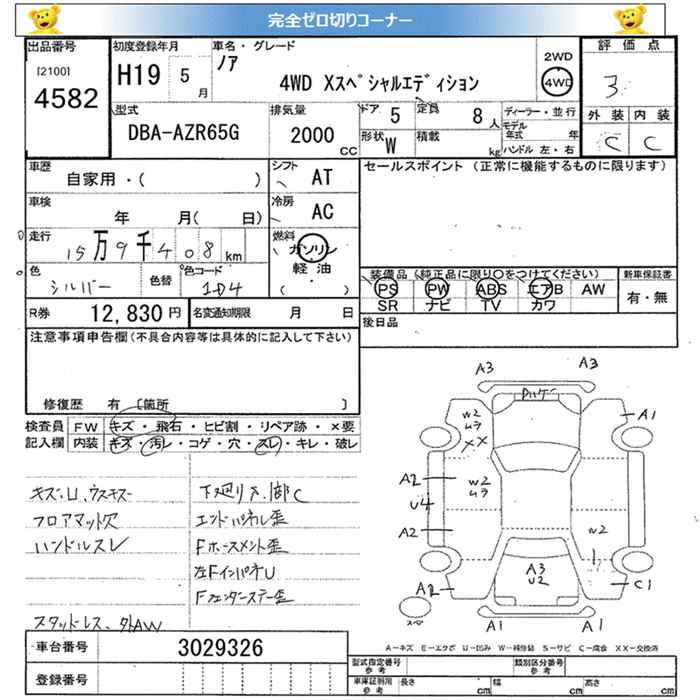 完全ゼロ切りコーナー
出品番号 初度登録年月 車名・グレード 2WD 評価点
[2100] 4582 H19 5月 ノア 4WD Xスペシャルエディション 4WD 3
型式 排気量 ドア 5 定員 8人 ディーラー・並行 外装 内装
DBA-AZR65G 2000 CC 形状 W 積載 kg モデル年式 年 C C
ハンドル 左・右
車歴 シフト セールスポイント (正常に機能するものに限ります)
自家用・( ) AT
車検 冷房
年 月( 日) AC
走行 15万9千408km 燃料 ガソリン
軽油
( )
色 シルバー 色替 色コード 1D4
装備品 (純正品に限り○をつけてください) 新車保証書
PS PW ABS エアB AW 有・無
SR ナビ TV カワ
R券 12,830円 名変通知期限 月 日 後日品
注意事項申告欄 (不具合内容等は具体的に記入して下さい)
修復歴 有 [箇所 ]
検査員 FW キズ・飛石・ヒビ割・リペア跡・×要
記入欄 内装 キズ・汚レ・コゲ・穴・スレ・キレ・破レ
キズ、U、ウスキズ
フロアマット欠
ハンドルスレ
スタッドレス、外AW
下廻りス、1部C
エンドパネル歪
Fホースメント歪
左FインパネU
Fフェンダーステー歪
A3 A3
W2 ムラ XX A1
A2 W2 ムラ
U4
A2 W2
A3 U2
A2 C1
A1 A1
スペ
A-キズ E-エクボ U-凹み W-補修跡 S-サビ C-腐食 XX-交換済
車台番号 3029326
登録番号
型式指定番号 参考 類別区分番号 参考
車庫証明用 参考 長さ cm 幅 cm 高さ cm